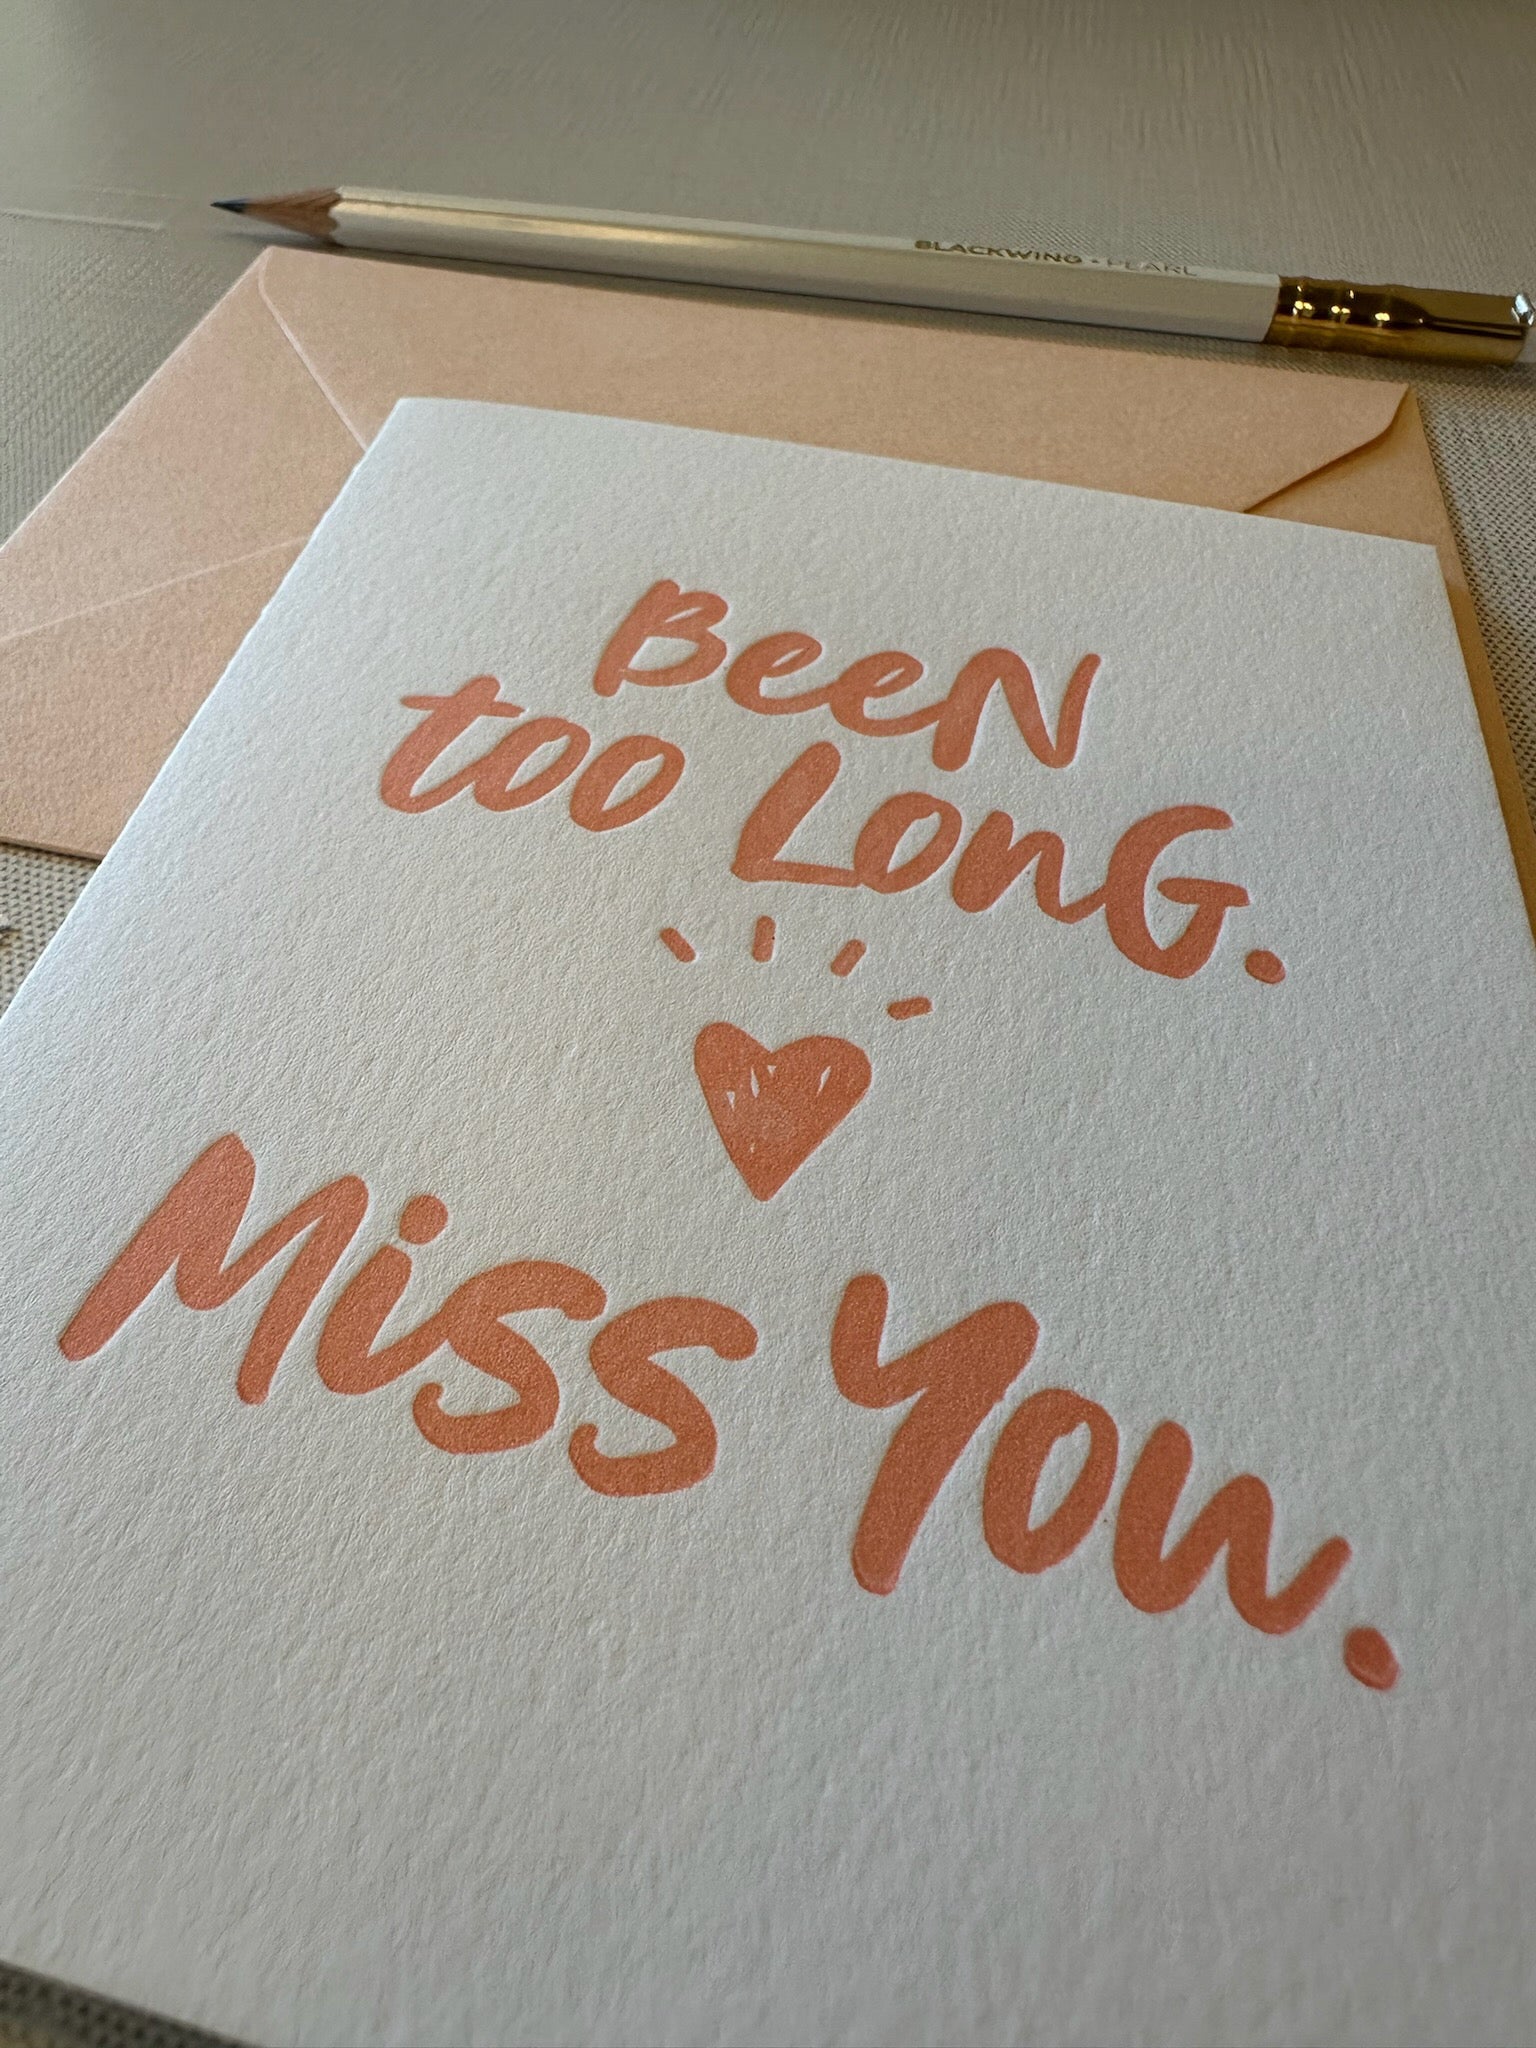 BLACKWING • PEARL
BeeN
too LonG.
Miss You.